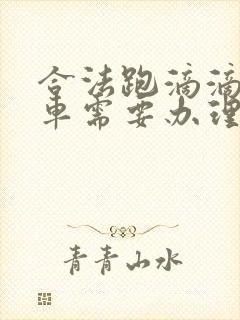 合法跑滴滴
车需要办理
青青山水